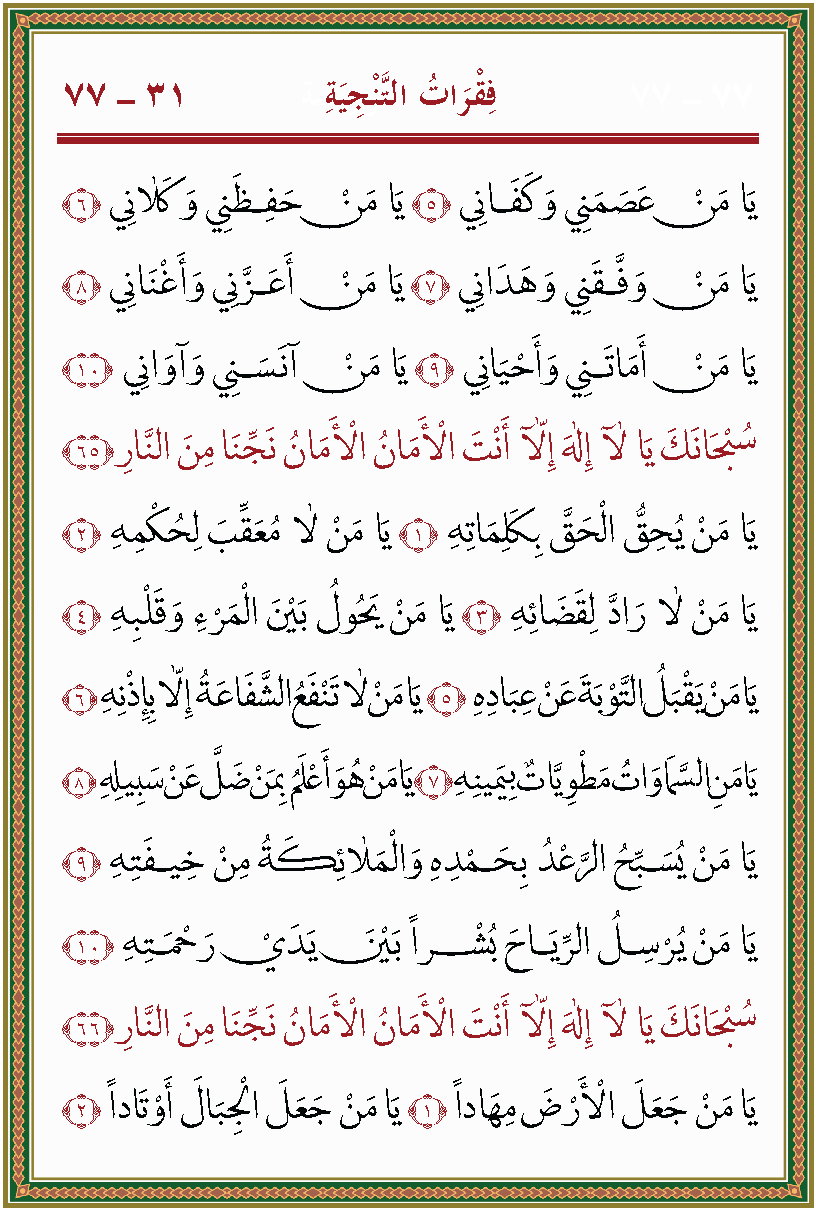 فِقَرَاتُ التَّنْجِيَةِ ٣١ ـ ٧٧
يَا مَنْ عَصَمَنِي وَكَفَانِي ﴿٥﴾ يَا مَنْ حَفِظَنِي وَكَلَانِي ﴿٦﴾
يَا مَنْ وَفَّقَنِي وَهَدَانِي ﴿٧﴾ يَا مَنْ أَعَزَّنِي وَأَغْنَانِي ﴿٨﴾
يَا مَنْ أَمَاتَنِي وَأَحْيَانِي ﴿٩﴾ يَا مَنْ آنَسَنِي وَآوَانِي ﴿١٠﴾
سُبْحَانَكَ يَا لَآ إِلٰهَ إِلَّآ أَنْتَ الْأَمَانُ الْأَمَانُ نَجِّنَا مِنَ النَّارِ ﴿٦٥﴾
يَا مَنْ يُحِقُّ الْحَقَّ بِكَلِمَاتِهِ ﴿١﴾ يَا مَنْ لَا مُعَقِّبَ لِحُكْمِهِ ﴿٢﴾
يَا مَنْ لَا رَادَّ لِقَضَائِهِ ﴿٣﴾ يَا مَنْ يَحُولُ بَيْنَ الْمَرْءِ وَقَلْبِهِ ﴿٤﴾
يَا مَنْ يَقْبَلُ التَّوْبَةَ عَنْ عِبَادِهِ ﴿٥﴾ يَا مَنْ لَا تَنْفَعُ الشَّفَاعَةُ إِلَّا بِإِذْنِهِ ﴿٦﴾
يَا مَنِ السَّمَاوَاتُ مَطْوِيَّاتٌ بِيَمِينِهِ ﴿٧﴾ يَا مَنْ هُوَ أَعْلَمُ بِمَنْ ضَلَّ عَنْ سَبِيلِهِ ﴿٨﴾
يَا مَنْ يُسَبِّحُ الرَّعْدُ بِحَمْدِهِ وَالْمَلَائِكَةُ مِنْ خِيفَتِهِ ﴿٩﴾
يَا مَنْ يُرْسِلُ الرِّيَاحَ بُشْراً بَيْنَ يَدَيْ رَحْمَتِهِ ﴿١٠﴾
سُبْحَانَكَ يَا لَآ إِلٰهَ إِلَّآ أَنْتَ الْأَمَانُ الْأَمَانُ نَجِّنَا مِنَ النَّارِ ﴿٦٦﴾
يَا مَنْ جَعَلَ الْأَرْضَ مِهَاداً ﴿١﴾ يَا مَنْ جَعَلَ الْجِبَالَ أَوْتَاداً ﴿٢﴾